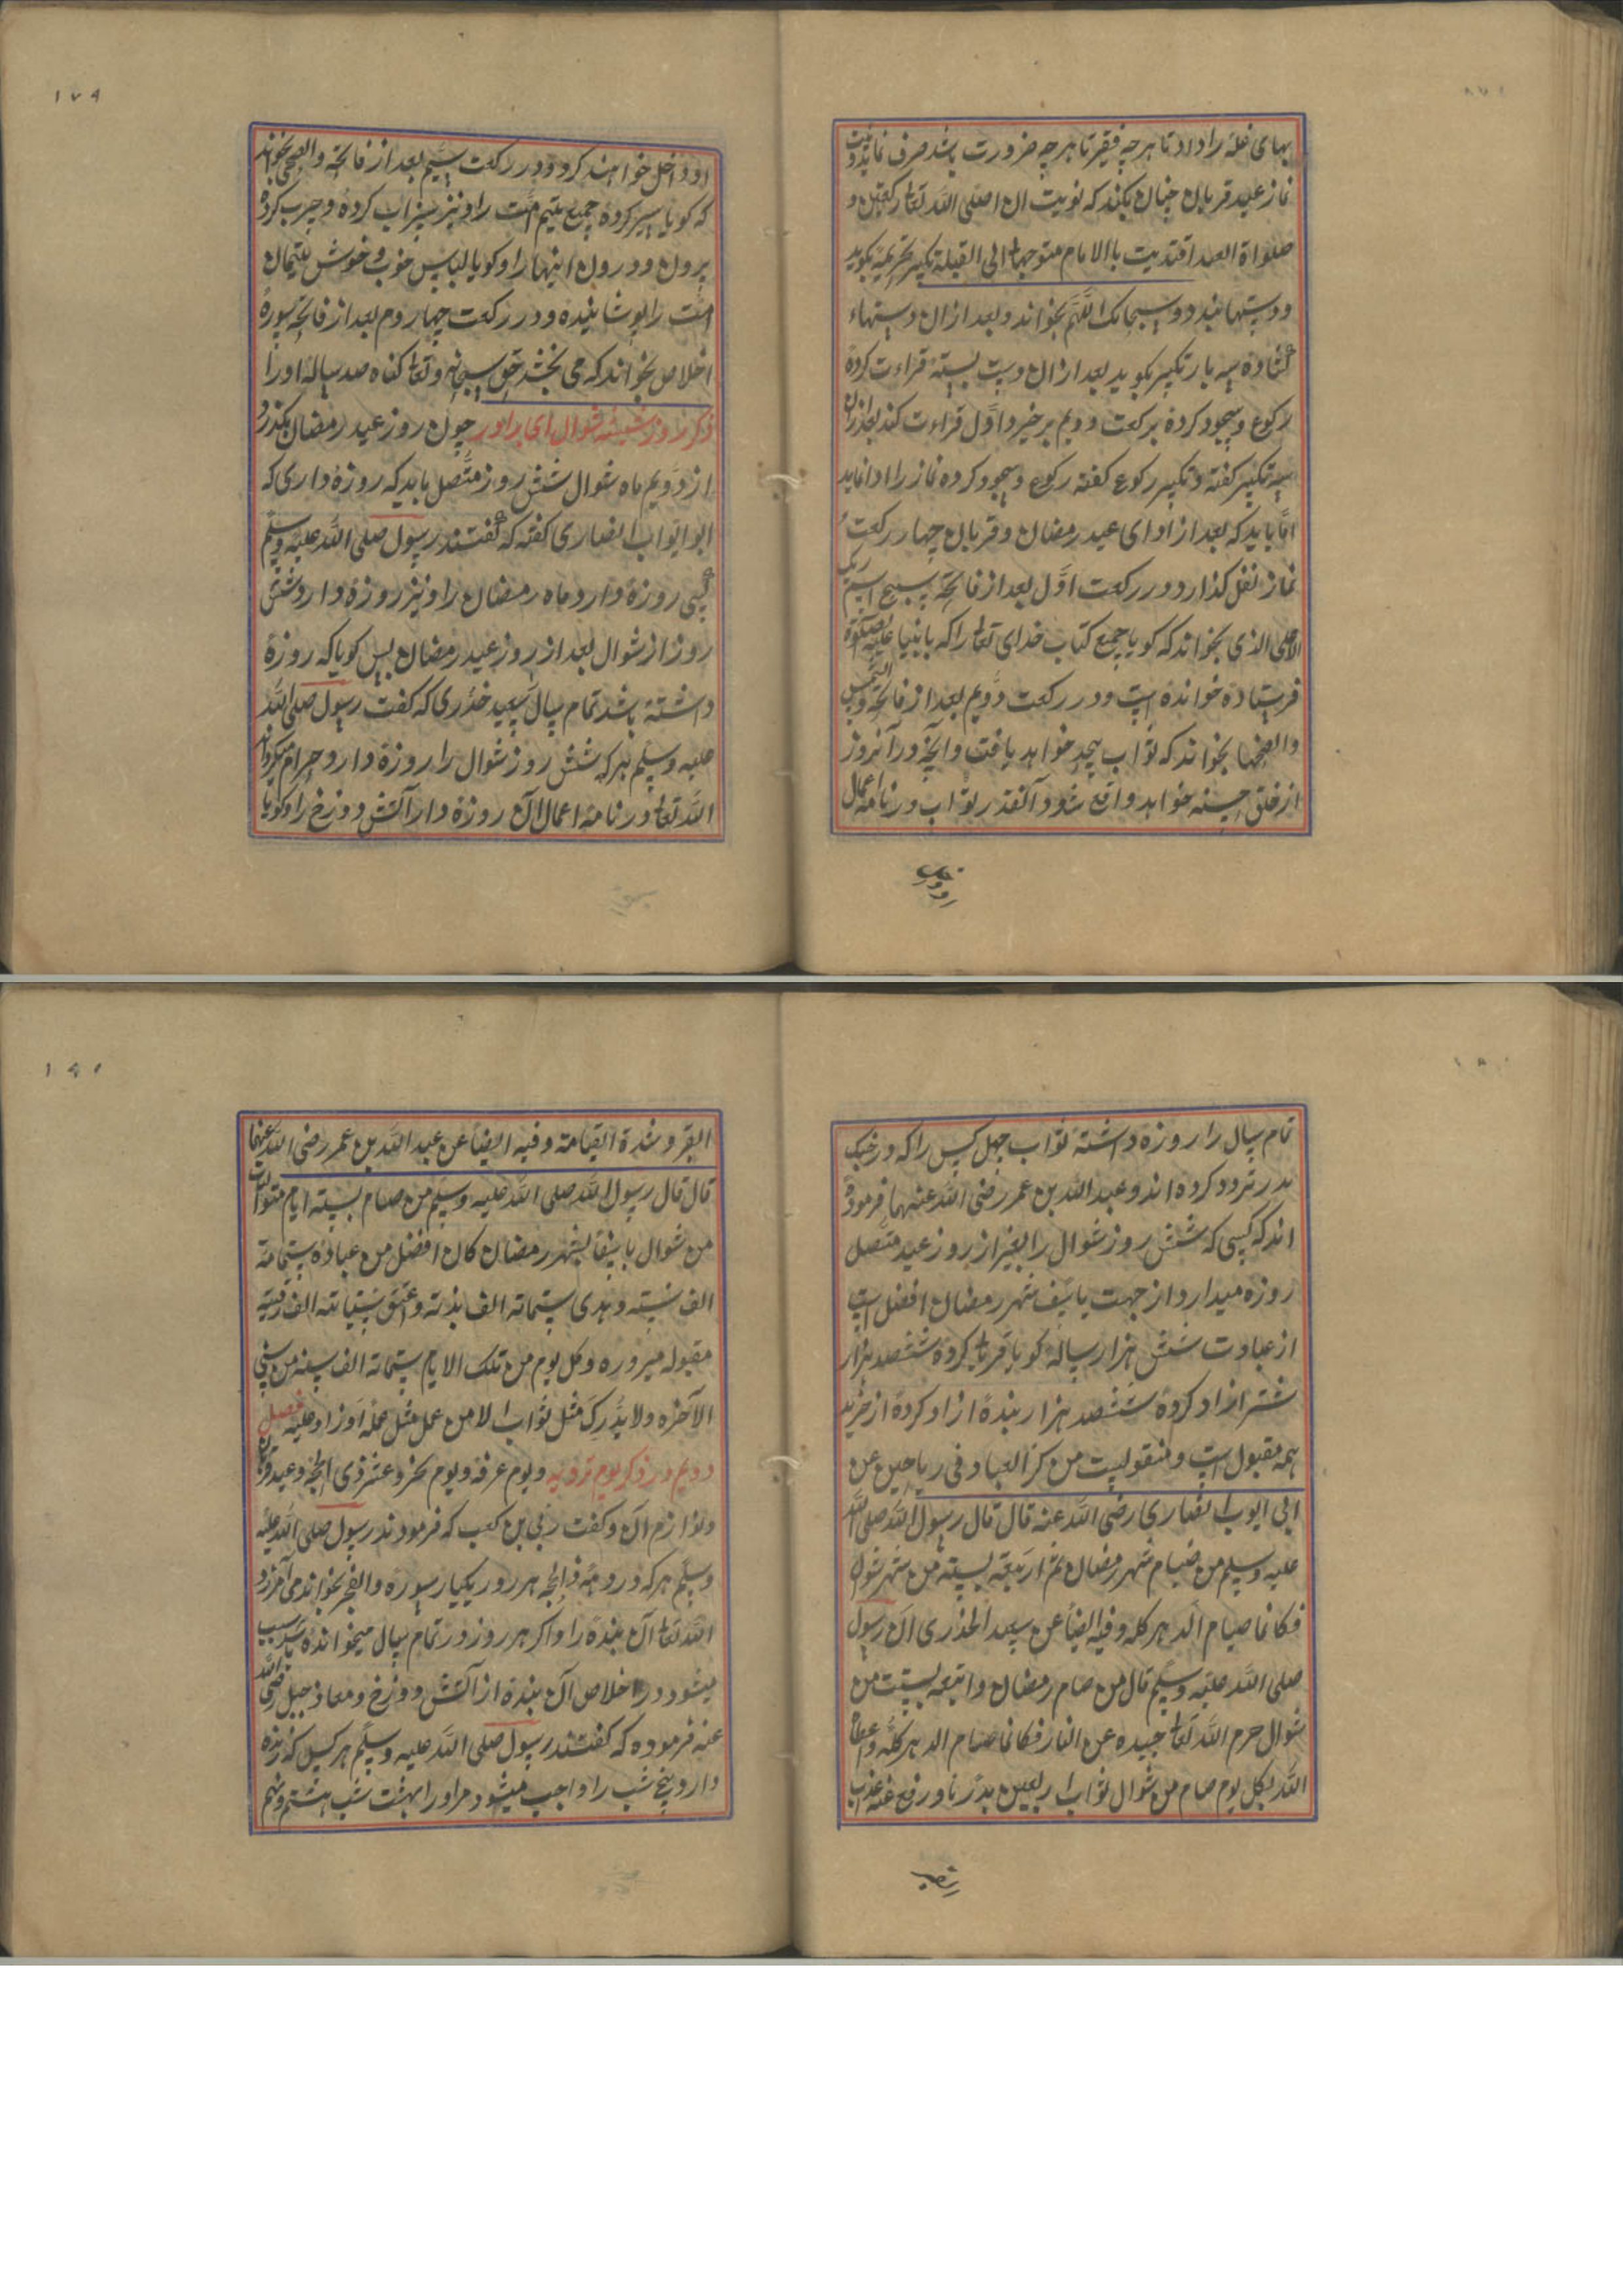 بهای غله را داد تا هر چه فقیر تا هر چه ضرورت باشد صرف نماید ونیت
نماز عید قربان چنان بکند که نویت ان اصلی الله تعالی رکعتین و
صلواة العید اقتدیت باالامام متوجها الی القبلة تکبیر تحریمه بکوید
ودستها بندد و سبحانک اللهم بخواند و بعد ازان دستهاء
کشاده سه بار تکبیر بکوید بعد ازان دست بسته قراءت کرده
رکوع و سجود کرده برکعت دویم برخیز و اول قراءت کند بعد ازان
سه تکبیر کفته و تکبیر رکوع کفته رکوع و سجود کرده نماز را ادا نماید
اما باید که بعد از ادای عید رمضان و قربان چهار رکعت
نماز نفل کذارد و در رکعت اول بعد از فاتحه سبح اسم ربک
الاعلی الذی بخواند که کویا جمیع کتاب خدای تعالی را که بانبیا علیه الصلوة
فرستاده خوانده است و در رکعت دویم بعد از فاتحه والشمس
والضحها بخواند که ثواب بیحد خواهد یافت وانچه در آنروز
از فلق حسنه خواهد واقع شود آنقدر ثواب در نامه اعمال
۱۷۹
او داخل خواهند کرد و در رکعت سیم بعد از فاتحه والضحی بخواند
که کویا سیر کرده جمیع یتیم امت را و نیز سیراب کرده و چرب کرده
برون و درون اینها را و کویا لباس خوب و خوش یتیمان
امت را پوشانیده و در رکعت چهاردم بعد از فاتحه سوره
اخلاص بخواند که می بخشد حق سبحانه و تعالی کناه صد ساله او را
ذکر روز ششه شوال ای برادر چون روز عید رمضان بکذرد
از دویم ماه شوال شش روز متصل باید که روزه داری که
ابو ایواب انصاری کفته که کفتند رسول صلی الله علیه وسلم
کسی روزه دارد ماه رمضان را و نیز روزه دارد شش
روز از شوال بعد از روز عید رمضان پس کویا که روزه
داشته باشد تمام سال سعید خدری که کفت رسول صلی الله
علیه وسلم هر که شش روز شوال را روزه دارد حرام میکرداند
الله تعالی در نامه اعمال آن روزه دار آتش دوزخ را و کویا
تمام سال را روزه داشته ثواب چهل کس را که در جنک
بدر تردد کرده اند و عبد الله بن عمر رضی الله عنهما فرموده
اند که کسی که شش روز شوال را بغیر از روز عید متصل
روزه میدارد از جهت شهر رمضان افضل است
از عبادت شش هزار ساله کویا قربانی کرده ششصد هزار
شتر ازاد کرده ششصد هزار بنده ازاد کرده از خرید
همه مقبول است و منقولیست من کنز العباد فی ریاحین عن
ابی ایوب انصاری رضی الله عنه قال قال رسول الله صلی الله
علیه وسلم من صیام شهر رمضان ثم اربعة بسته من شهر شوال
فکانما صیام الدهر کله وفیه ایضا عن سعید الخذری ان رسول
صلی الله علیه وسلم قال من صام رمضان واتبعه بست من
شوال حرم الله تعالی جسده عن النار فکانما صام الدهر کله واعطا
الله بکل یوم صام من شوال ثواب اربعین بدرنا و رفع عنه عذاب
القبر و شدة القیامة وفیه ایضا عن عبد الله بن عمر رضی الله عنهما
قال قال رسول الله صلی الله علیه وسلم من صام بسته ایام متوالیات
من شوال شهر رمضان کان افضل من عبادة ستماته
الف سنه و هدی ستماته الف بدنه و عتق ستماته الف رقبه
مقبوله مبروره و کل یوم من تلک الایام ستماته الف سنه من سنی
الآخره ولا یدرک مثل ثواب الا من عمل مثل عمله او زاد علیه فصل
دویم در ذکر یوم ترویه ویوم عرفه ویوم نحر و عشر ذی الحجه و عید قربان
و لوازم آن و کفت ربی بن کعب که فرمودند رسول صلی الله علیه
وسلم هر که در ذالحجه هر روز یکبار سوره والفجر بخواند می آمرزد
الله تعالی آن بنده را و اکر هر روز در تمام سال میخوانده باشد سبب
میشود در اخلاص آن بنده از آتش دوزخ و معاذ جبل رضی الله
عنه فرموده که کفتند رسول صلی الله علیه وسلم هر کس که زنده
دارد پنج شب را واجب میشود مر او را بهشت شب هشتم و نهم